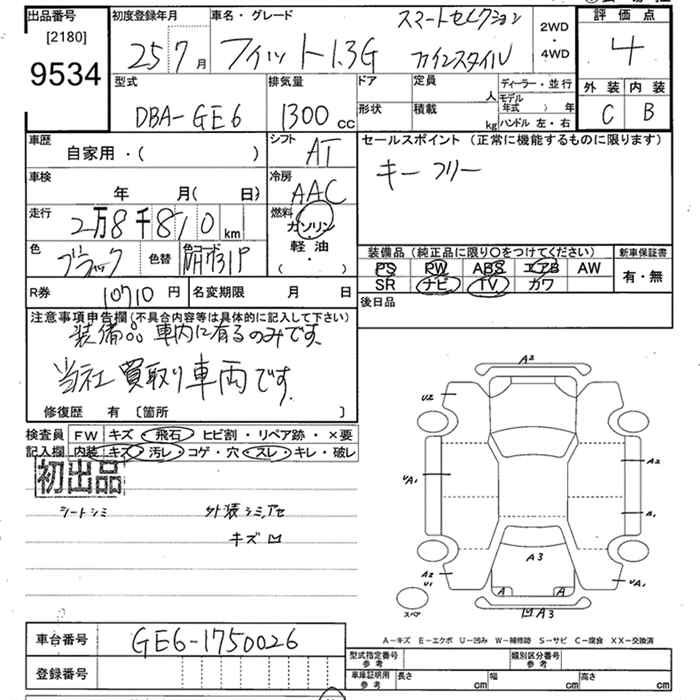 出品番号
[2180]
9534
初度登録年月
25 7 月
車名・グレード
フィット1.3G
スマートセレクション
ファインスタイル
2WD
・
4WD
評価点
4
外装 内装
C B
型式
DBA-GE6
排気量
1300 cc
ドア
形状
定員
人
積載
kg
ディーラー・並行
モデル年式 ) 年
ハンドル 左・右
車歴
自家用・( )
シフト
AT
セールスポイント (正常に機能するものに限ります)
キーフリー
車検
年 月( 日)
冷房
AAC
走行
2万8千810 km
燃料
ガソリン
軽油
( ・ )
色
ブラック
色替
色コード
NH731P
装備品 (純正品に限り○をつけてください)
PS PW ABS エアB AW
SR ナビ TV カワ
新車保証書
有・無
R券
10710 円
名変期限 月 日
後日品
注意事項申告欄(不具合内容等は具体的に記入して下さい)
装備品 車内に有るのみです。
当社 買取り車両です。
修復歴 有 〔箇所 〕
検査員
記入欄
FW キズ・飛石・ヒビ割・リペア跡・×要
内装 キズ・汚レ・コゲ・穴・スレ・キレ・破レ
初出品
シートシミ
外装シミ,アセ
キズ凹
A2
U2
A2
UA1
A1
A3
A2
U1
UA1
A A
スペア
凹A3
車台番号
GE6-1750026
登録番号
A-キズ E-エクボ U-凹み W-補修跡 S-サビ C-腐食 XX-交換済
型式指定番号
参考
類別区分番号
参考
車庫証明用
参考
長さ cm 幅 cm 高さ cm